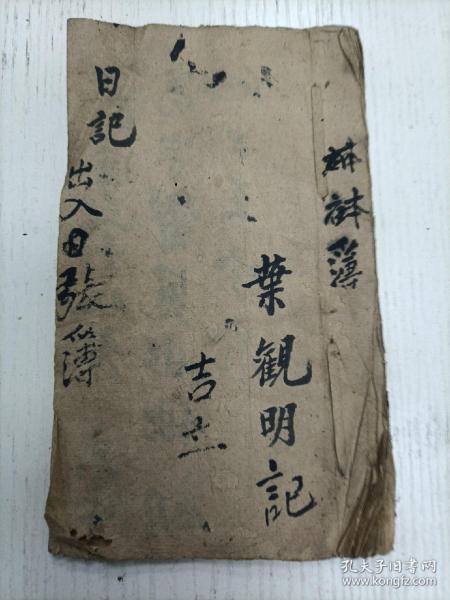 簿
葉觀明記
吉立
日記
出入日張簿
孔夫子旧书网
www.kongfz.com